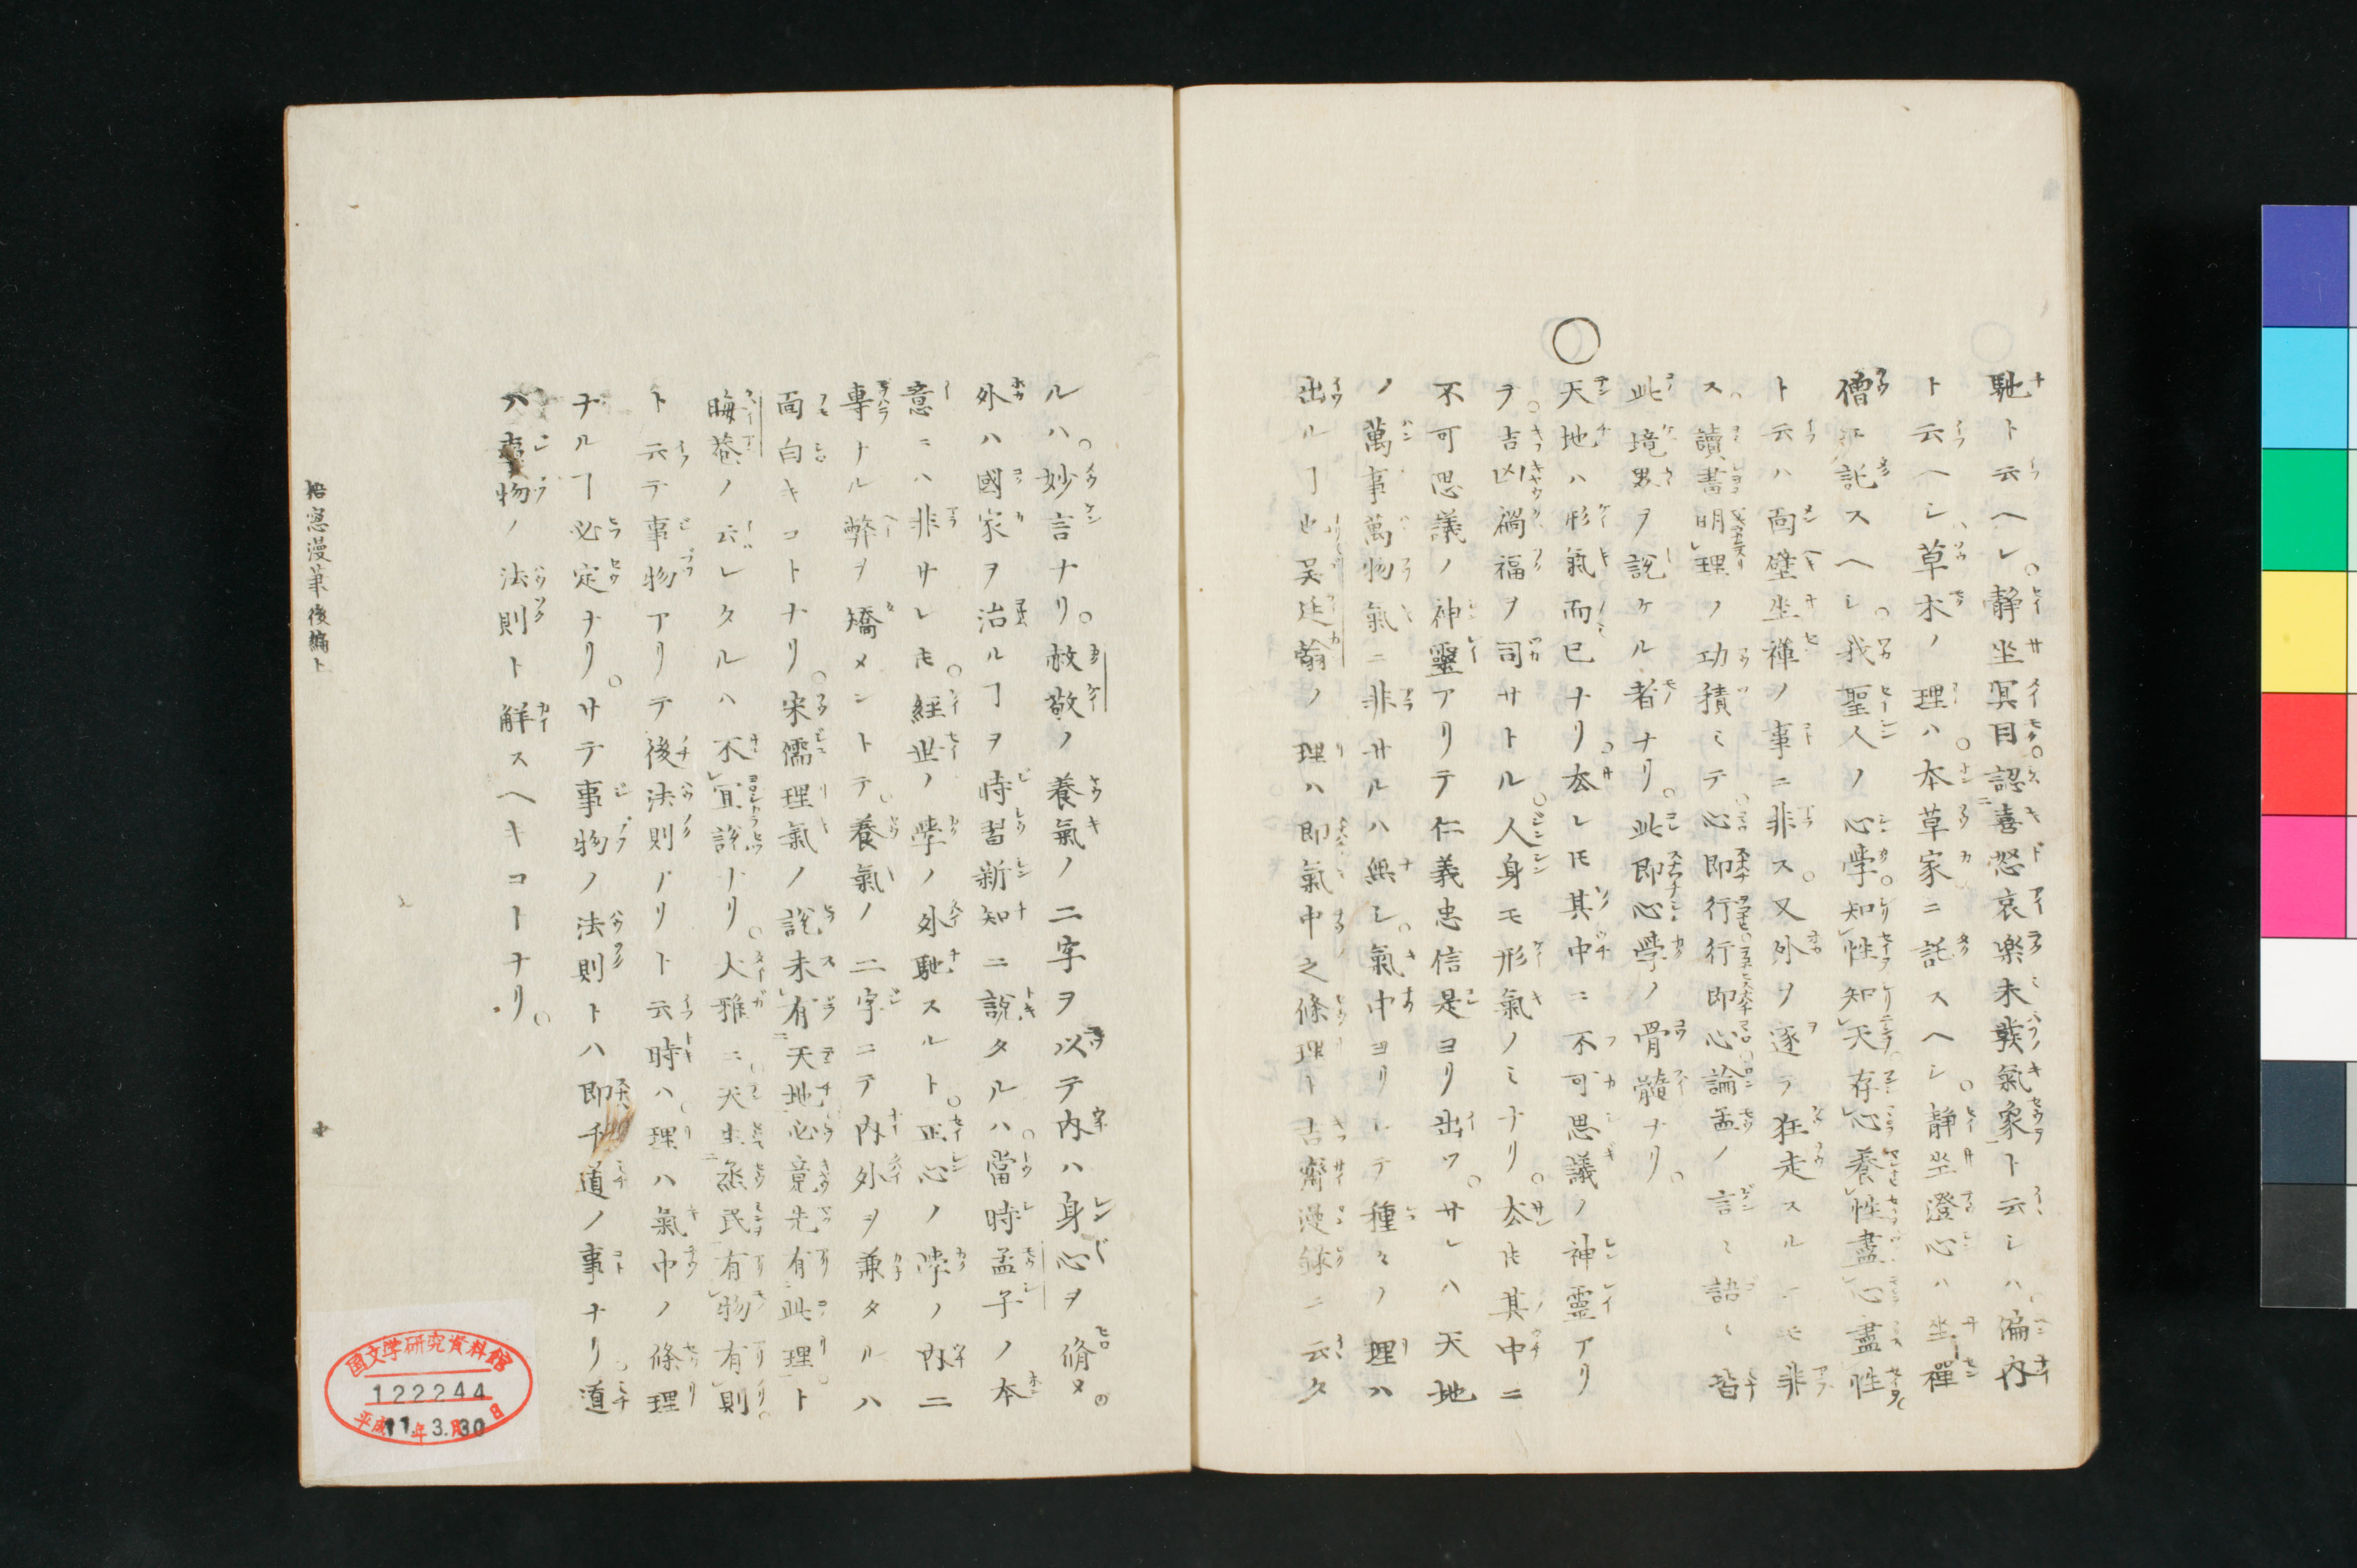 馳ト云ヘレ。静坐冥目。認喜怒哀楽未發氣象ト云シハ。偏内
ト云ヘシ、草木ノ理ハ。本草家ニ託スヘシ。静坐澄心ハ坐禪
僧ニ託スヘシ。我聖人ノ心學。知性知天。存心養性。盡心盡性。
ト云ハ面壁坐禅ノ事ニ非ス。又外ヲ逐ヲ狂走スルニモ非
ス。讀書明理ノ功積ミテ。心即行行即心。論孟ノ言〻語〻皆
此境界ヲ說ケル者ナリ。此即心學ノ骨髓ナリ。
○天地ハ形氣而已ナリ。然レ𪜈其中ニ不可思議ノ神靈アリ
テ。吉凶禍福ヲ司サトル。人身モ形氣ノミナリ。然𪜈其中ニ
不可思議ノ神靈アリテ仁義忠信是ヨリ出ツ。サレハ天地
ノ萬事萬物氣ニ非サルハ無シ。氣中ヨリシテ種々ノ理ハ
出ルヿ也吴廷翰ノ理ハ即氣中之條理ト吉齋漫録ニ云タ
ルハ。妙言ナリ。故敬ノ養氣ノ二字ヲ以テ内ハ身心ヲ脩メ。
外ハ國家ヲ治ルヿヲ時習新知ニ說タルハ。當時孟子ノ本
意ニハ非サレ𪜈。經世ノ學ノ外馳スルト。正心ノ學ノ内ニ
專ナル弊ヲ矯メントテ。養氣ノ二字ニテ内外ヲ兼タルハ
面白キコトナリ。宋儒理氣ノ說未有天地必竟先有此理。ト
晦菴ノ云レタルハ不宜說ナリ。大雅ニ。天生烝民有物有則。
ト云テ事物アリテ後法則アリト云時ハ。理ハ氣中ノ條理
ナルヿ必定ナリ。サテ事物ノ法則トハ即千道ノ事ナリ。道
ハ事物ノ法則ト解スヘキコトナリ。
梧窓漫筆後編ト
国文学研究資料館
122244
平成11年3月30日